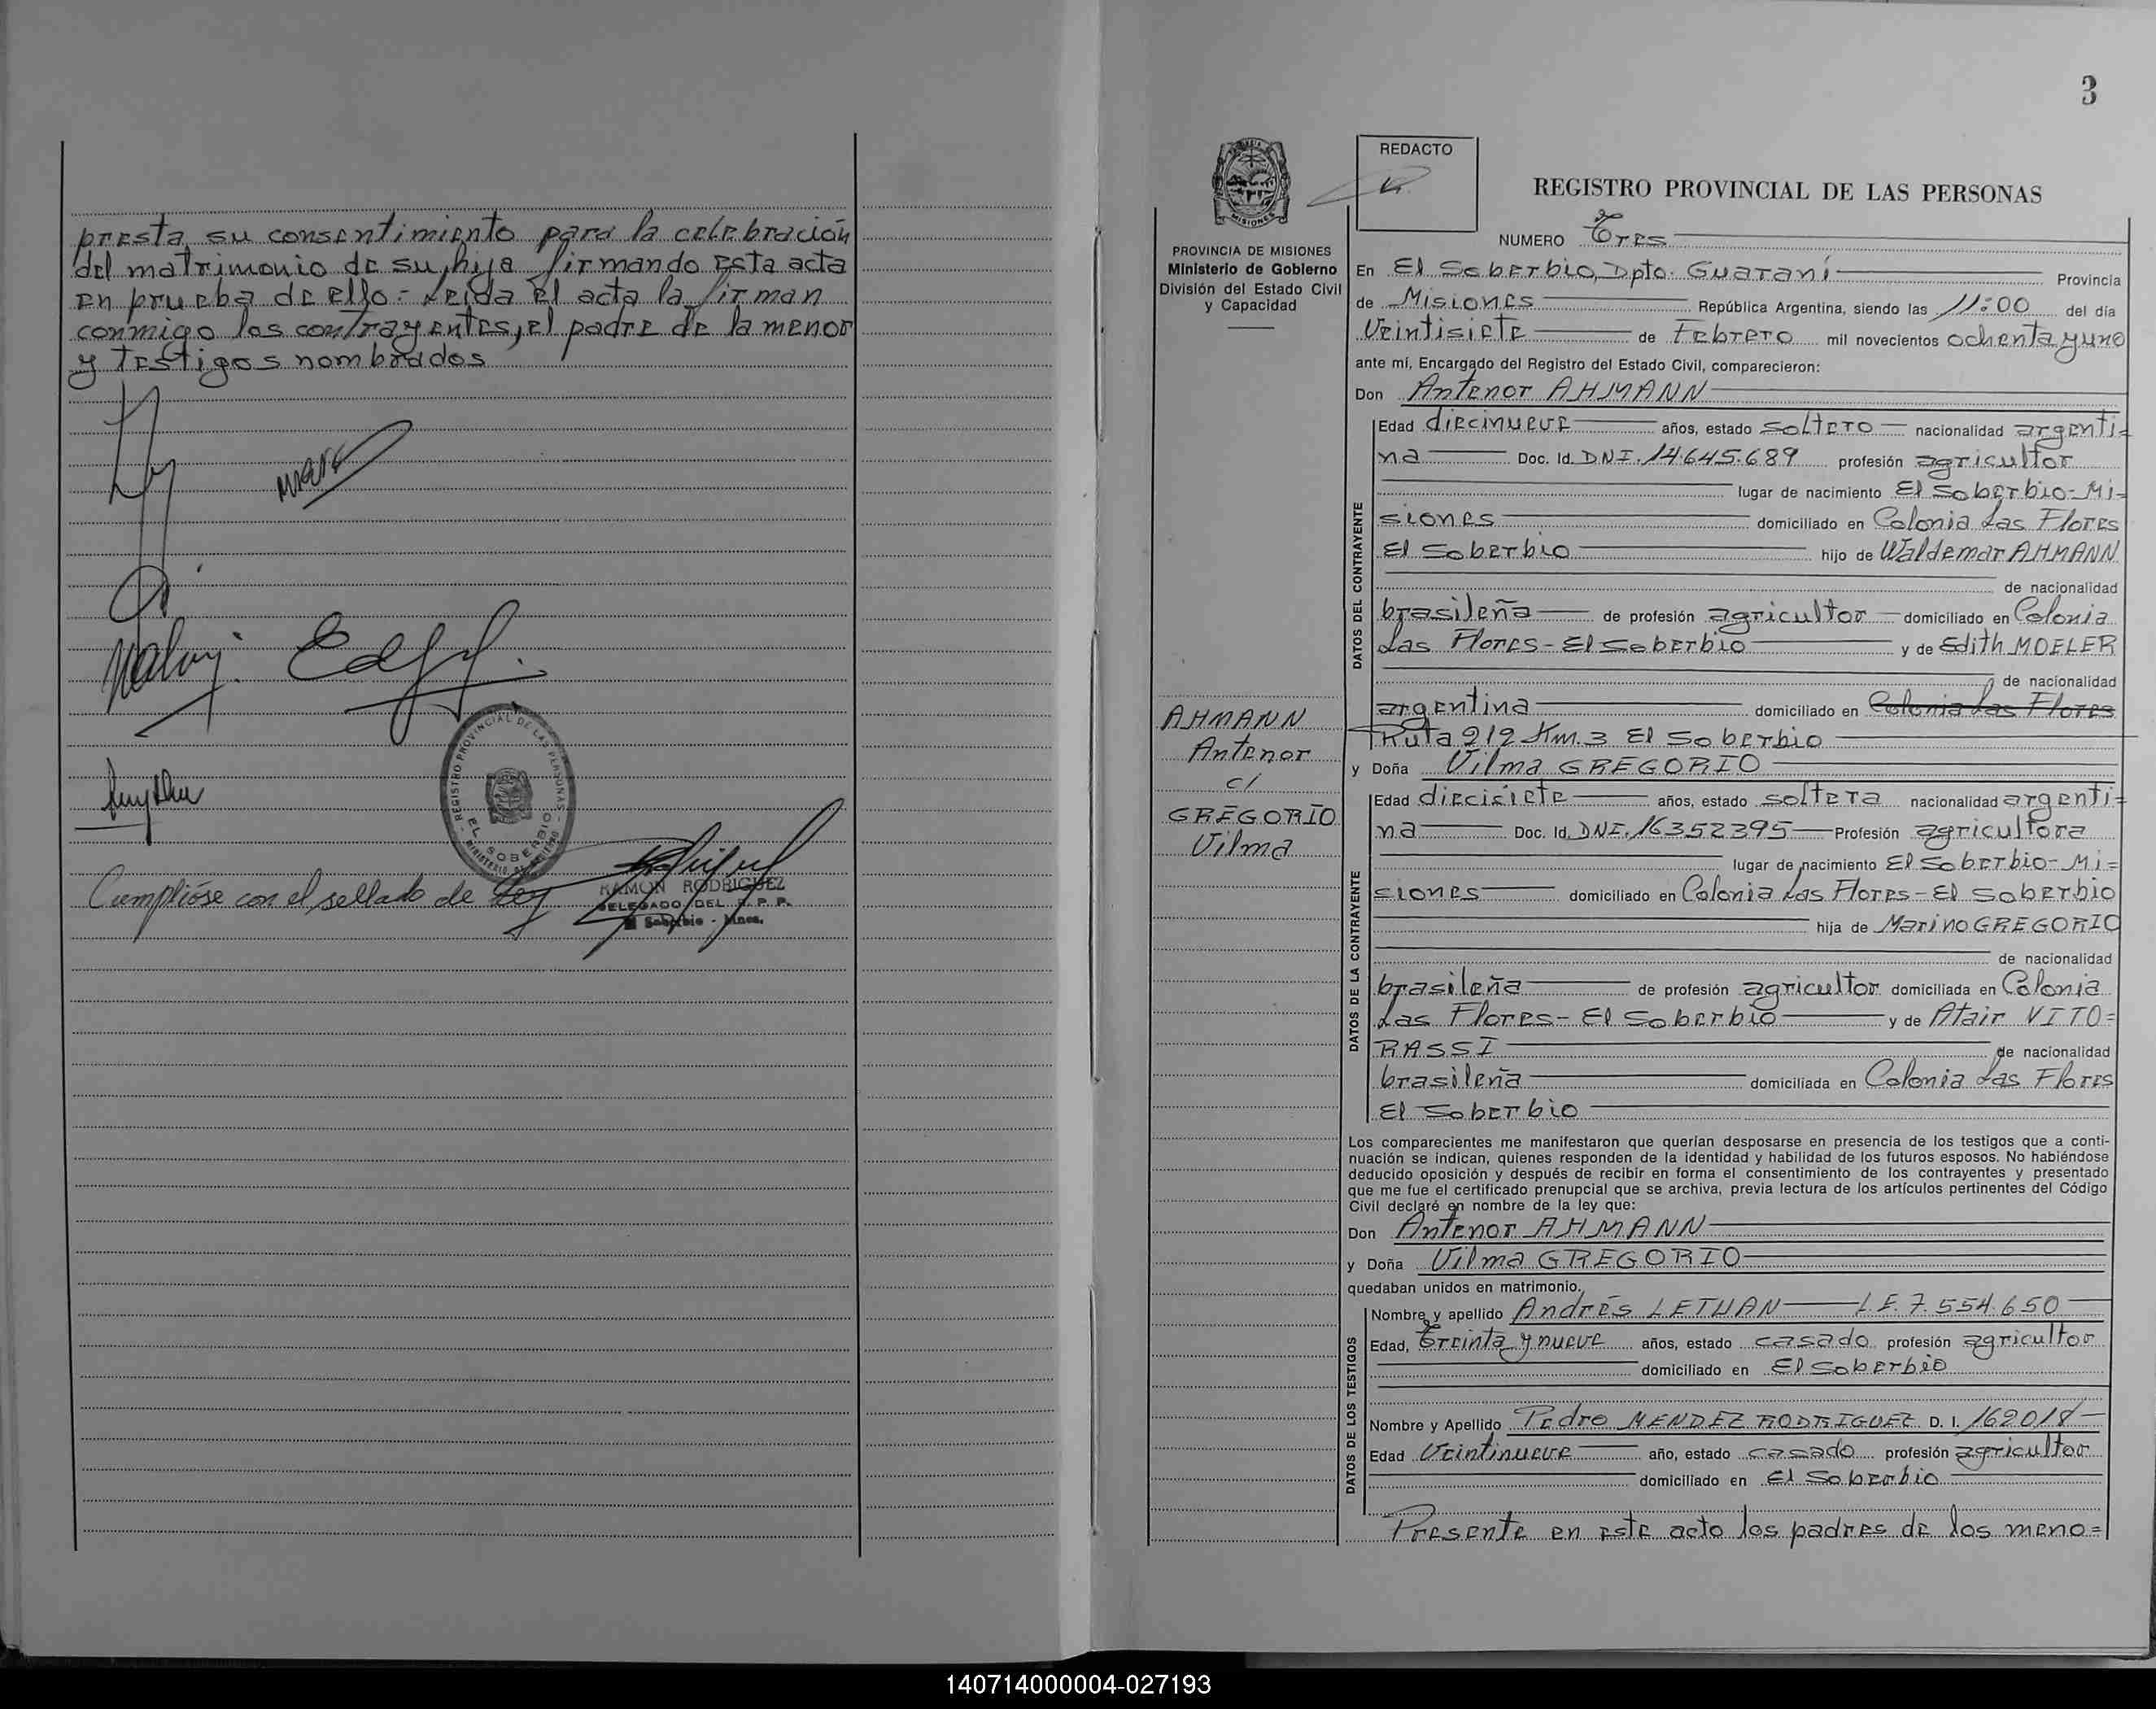 presta su consentimiento para la celebración
del matrimonio de su hija firmando esta acta
en prueba de ello.- Leída el acta la firman
conmigo los contrayentes, el padre de la menor
y testigos nombrados
Cumplióse con el sellado de Ley
REGISTRO PROVINCIAL DE LAS PERSONAS
EL SOBERBIO
MINISTERIO DE GOBIERNO
RAMON RODRIGUEZ
DELEGADO DEL R. P. P.
El Soberbio - Mnes.
3
REDACTO
MISIONES
PROVINCIA DE MISIONES
Ministerio de Gobierno
División del Estado Civil
y Capacidad
AHMANN
Antenor
c/
GREGORIO
Vilma
REGISTRO PROVINCIAL DE LAS PERSONAS
NUMERO Tres
En El Soberbio, Dpto. Guaraní Provincia
de Misiones República Argentina, siendo las 11:00 del día
Veintisiete de Febrero mil novecientos ochenta y uno
ante mí, Encargado del Registro del Estado Civil, comparecieron:
Don Antenor AHMANN
DATOS DEL CONTRAYENTE
Edad diecinueve años, estado soltero nacionalidad argenti=
na Doc. Id. DNI. 14.645.689 profesión agricultor
lugar de nacimiento El Soberbio- Mi=
siones domiciliado en Colonia Las Flores
El Soberbio hijo de Waldemar AHMANN
de nacionalidad
brasileña de profesión agricultor domiciliado en Colonia
Las Flores - El Soberbio y de Edith MOELER
de nacionalidad
argentina domiciliado en Colonia Las Flores
Ruta 212 Km. 3 El Soberbio
y Doña Vilma GREGORIO
DATOS DE LA CONTRAYENTE
Edad diecisiete años, estado soltera nacionalidad argenti=
na Doc. Id. DNI. 16352395 Profesión agricultora
lugar de nacimiento El Soberbio- Mi=
siones domiciliado en Colonia Las Flores - El Soberbio
hija de Marino GREGORIO
de nacionalidad
brasileña de profesión agricultor domiciliada en Colonia
Las Flores - El Soberbio y de Atair VITO=
RASSI de nacionalidad
brasileña domiciliada en Colonia Las Flores
El Soberbio
Los comparecientes me manifestaron que querían desposarse en presencia de los testigos que a conti-
nuación se indican, quienes responden de la identidad y habilidad de los futuros esposos. No habiéndose
deducido oposición y después de recibir en forma el consentimiento de los contrayentes y presentado
que me fue el certificado prenupcial que se archiva, previa lectura de los artículos pertinentes del Código
Civil declaré en nombre de la ley que:
Don Antenor AHMANN
y Doña Vilma GREGORIO
quedaban unidos en matrimonio.
DATOS DE LOS TESTIGOS
Nombre y apellido Andrés LETHAN L.E. 7.554.650
Edad, treinta y nueve años, estado casado profesión agricultor
domiciliado en El Soberbio
Nombre y Apellido Pedro MENDEZ RODRIGUEZ D. I. 162018
Edad Veintinueve año, estado casado profesión agricultor
domiciliado en El Soberbio
Presente en este acto los padres de los meno=
140714000004-027193